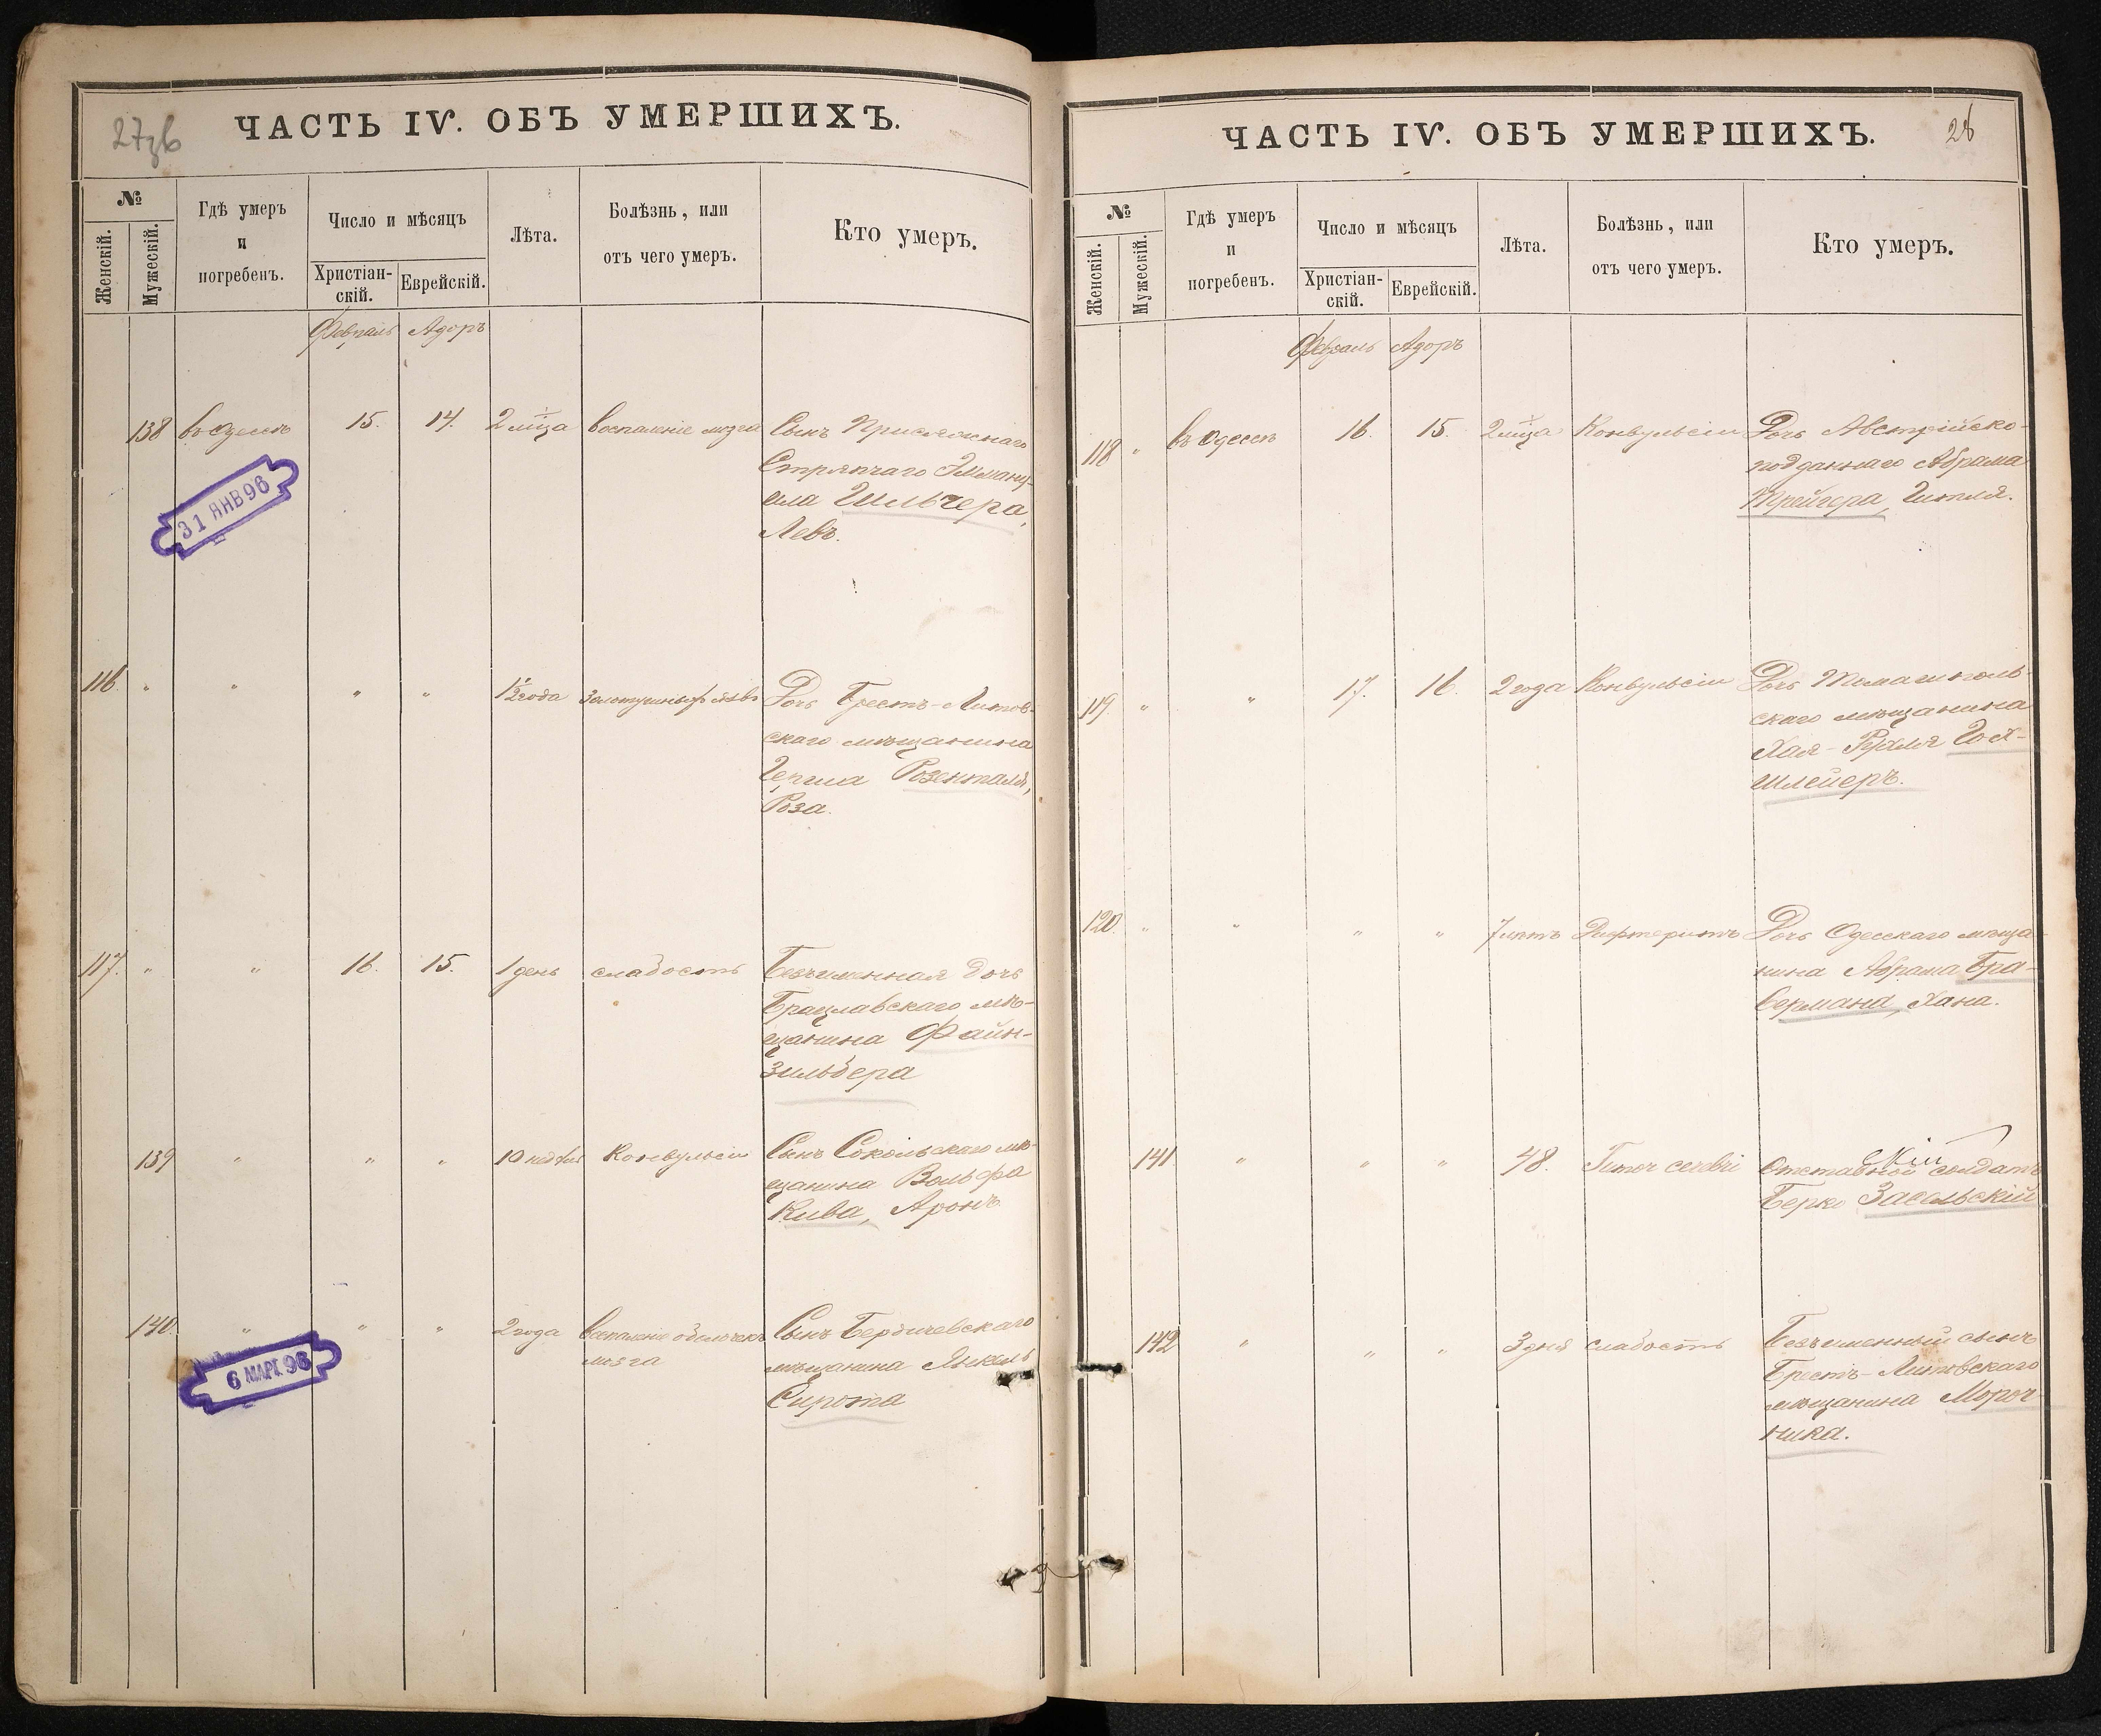 ЧАСТЬ IV. ОБЪ УМЕРШИХЪ.
№
Женскій.
Мужескій.
Гдѣ умеръ
и
погребенъ.
Число и мѣсяцъ
Христіан-
скій.
Еврейскій.
Лѣта.
Болѣзнь, или
отъ чего умеръ.
Кто умеръ.
Февраль Адоръ
138 въ Одессѣ 15. 14. 2 м-ца воспаленіе мозга Сынъ Присяжнаго
Стряпчаго Эмману-
ила Гильчера,
Левъ.
31 ЯНВ 96
116. " " " " 1½ года Дочь Брестъ-Литов-
скаго мѣщанина
Розенталя,
Роза.
117. " " 16. 15. 1 день слабость Безъименная дочь
Брацлавскаго мѣ-
щанина Файн-
зильбера
139 " " " 10 недѣль Конвульсіи Сынъ Сокольскаго мѣ-
щанина Вольфа
Кива, Аронъ
140. " " " 2 года воспаленіе оболочекъ Сынъ Бердичевскаго
мозга мѣщанина Янкель
Сирота
6 МАРТ. 96
ЧАСТЬ IV. ОБЪ УМЕРШИХЪ.
28
№
Женскій.
Мужескій.
Гдѣ умеръ
и
погребенъ.
Число и мѣсяцъ
Христіан-
скій.
Еврейскій.
Лѣта.
Болѣзнь, или
отъ чего умеръ.
Кто умеръ.
Февраль Адоръ
118 " въ Одессѣ 16. 15. 2 м-ца Конвульсіи Дочь Австрійско-
подданнаго Абрама
Трейгера, Гитля.
119. " " 17. 16. 2 года Конвульсіи Дочь
скаго мѣщанина
Хая-Рухля Гох-
шлейеръ.
120. " " " " 7 лѣтъ Дифтеритъ Дочь Одесскаго мѣща-
нина Абрама Бра-
вермана, Хана.
141 " " " 48. Tumor cerebri Отставной солдатъ
Берко Засальскій
142 " " " 3 дня слабость Безъименный сынъ
Брестъ-Литовскаго
мѣщанина Мороч-
ника.